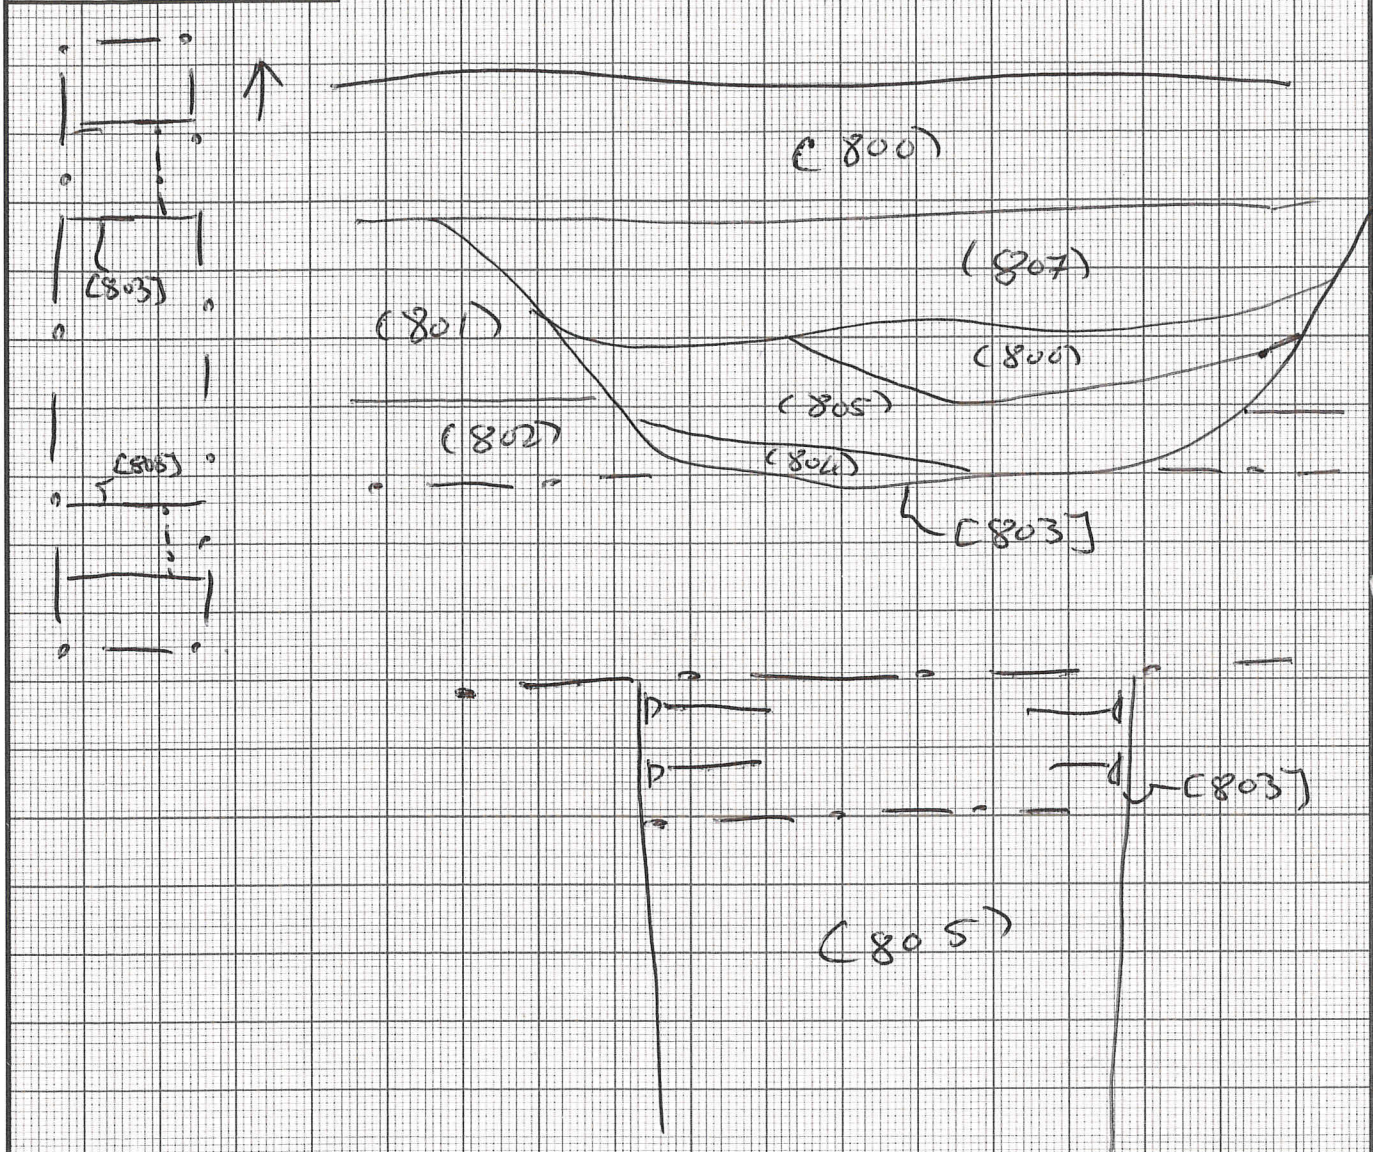 (800)
(807)
[803]
(801)
(800)
(805)
(802)
(804)
[803]
[803]
(805)